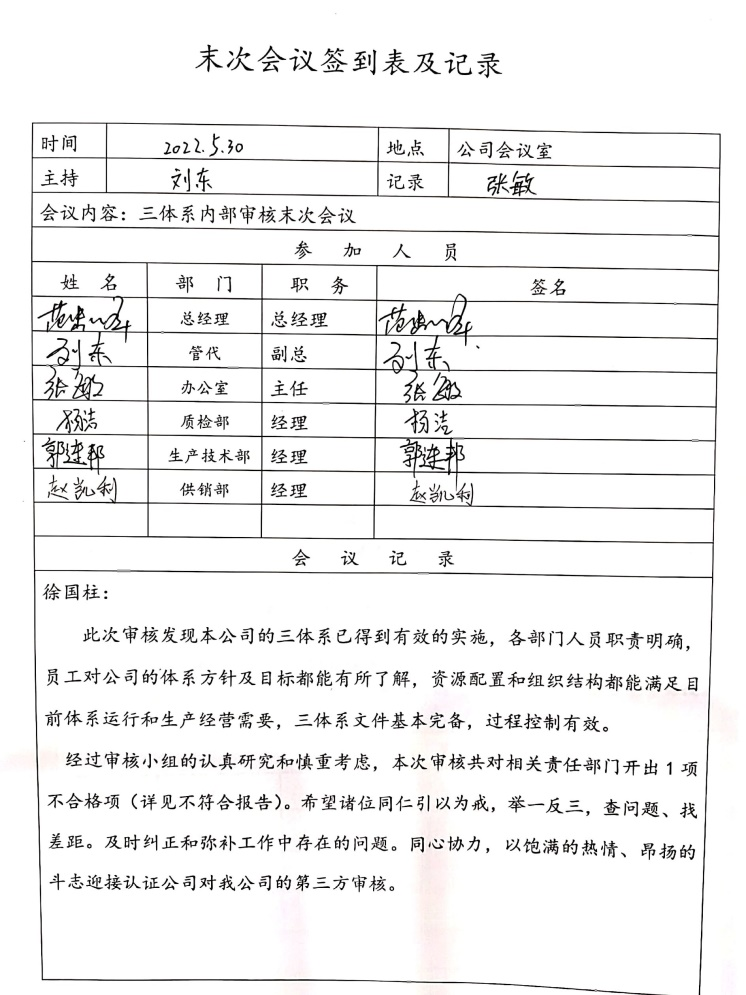 末次会议签到表及记录
时间 2022.5.30 地点 公司会议室
主持 刘东 记录 张敏
会议内容：三体系内部审核末次会议
参加人员
姓名 部门 职务 签名
总经理 总经理
刘东 管代 副总 刘东
张敏 办公室 主任 张敏
杨洁 质检部 经理 杨洁
郭连邦 生产技术部 经理 郭连邦
赵凯利 供销部 经理 赵凯利
会议记录
徐国柱：
此次审核发现本公司的三体系已得到有效的实施，各部门人员职责明确，
员工对公司的体系方针及目标都能有所了解，资源配置和组织结构都能满足目
前体系运行和生产经营需要，三体系文件基本完备，过程控制有效。
经过审核小组的认真研究和慎重考虑，本次审核共对相关责任部门开出 1 项
不合格项（详见不符合报告）。希望诸位同仁引以为戒，举一反三，查问题、找
差距。及时纠正和弥补工作中存在的问题。同心协力，以饱满的热情、昂扬的
斗志迎接认证公司对我公司的第三方审核。